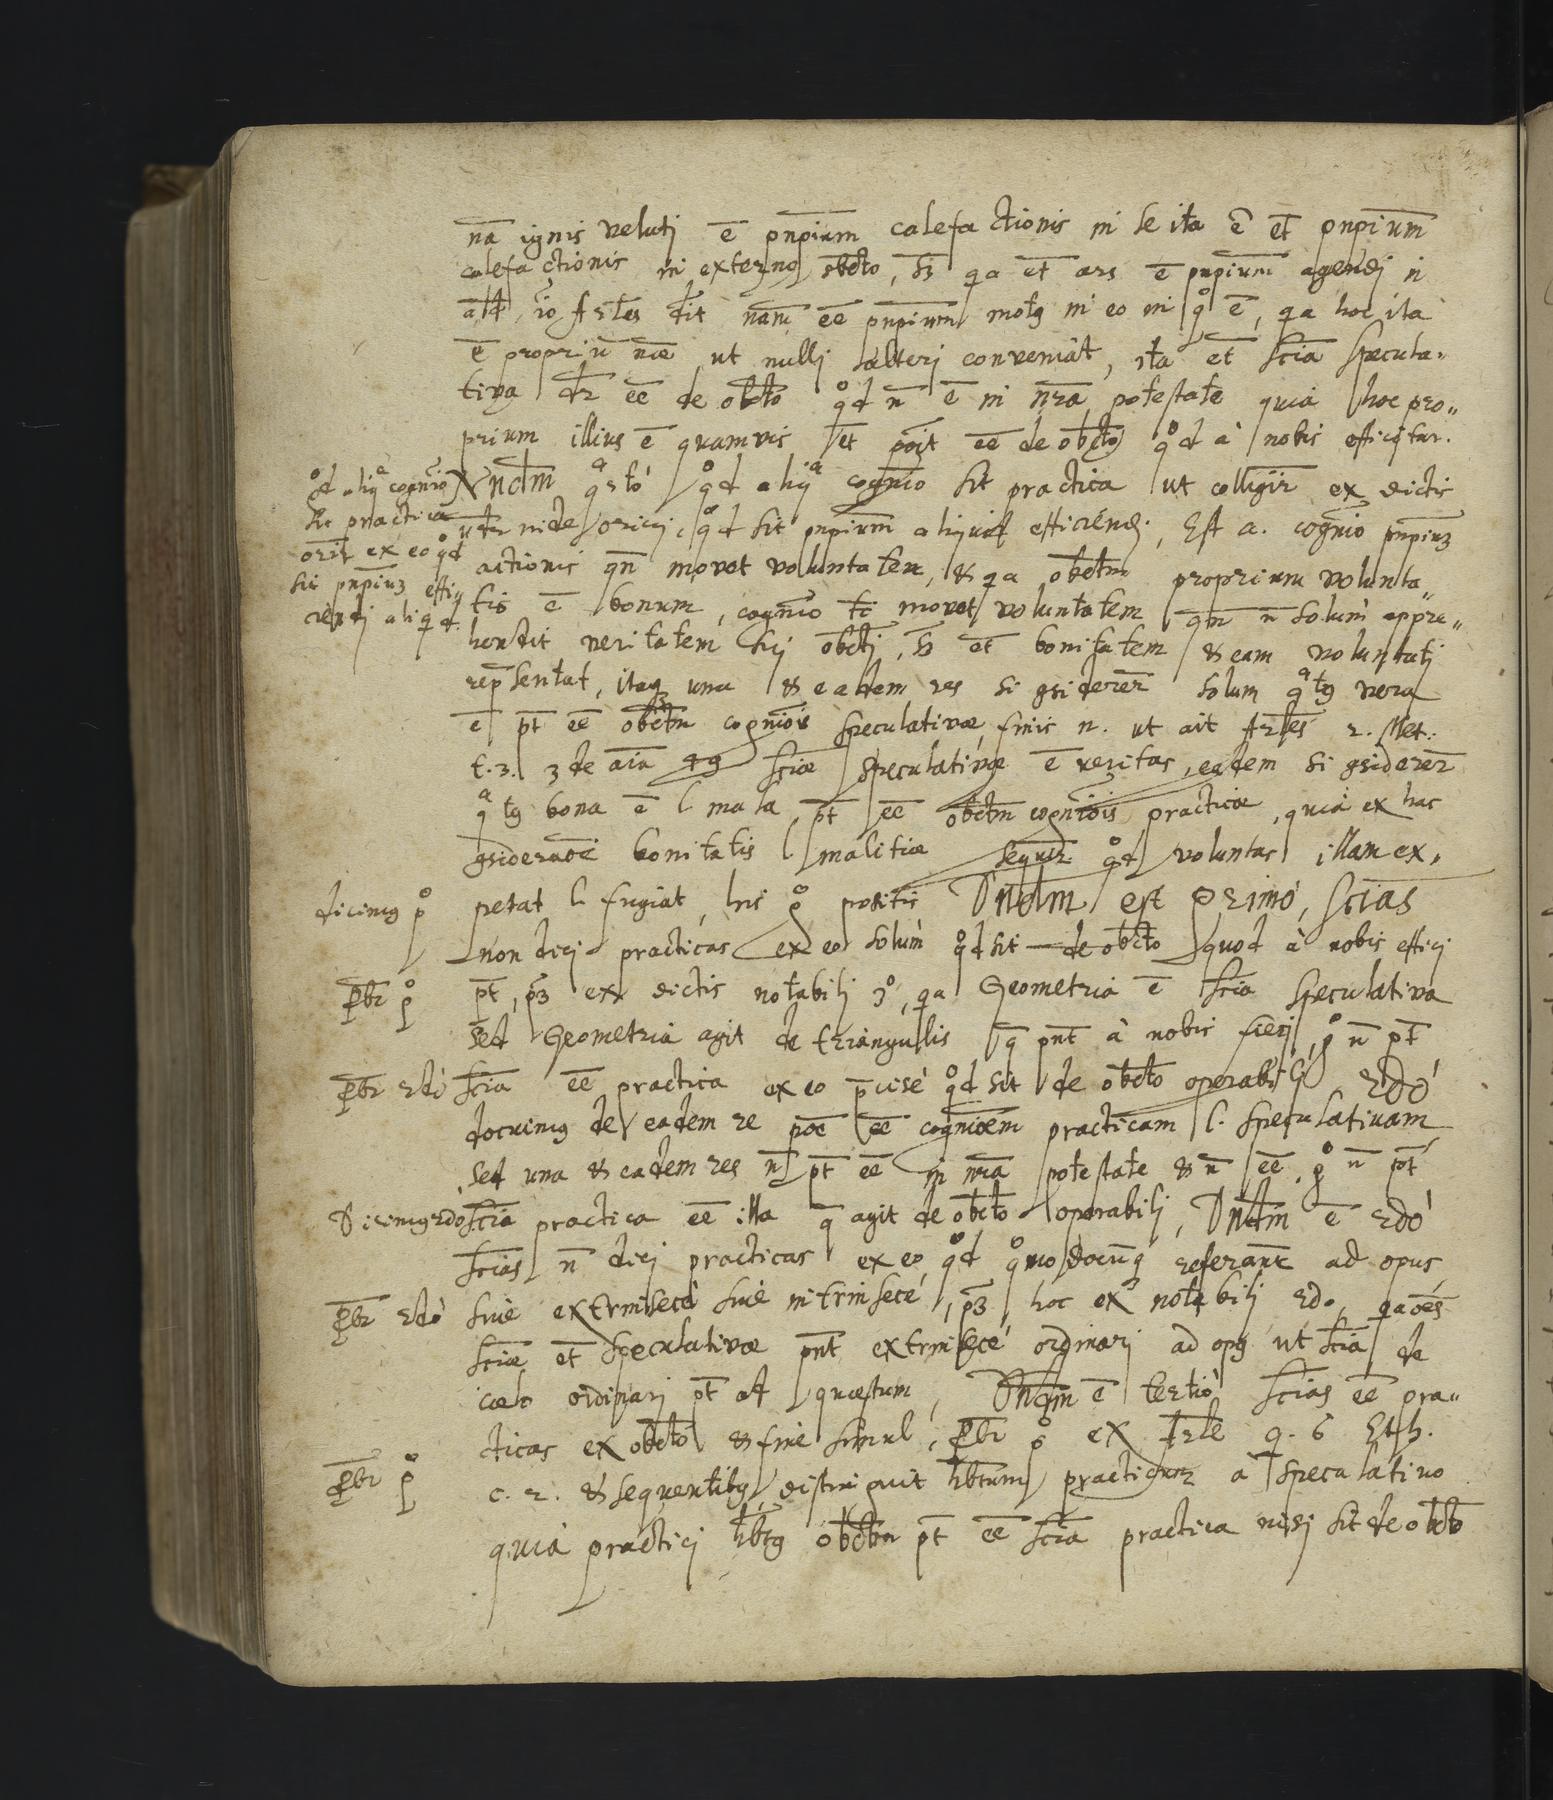 na̅ ignis velutj e̅ pnpium̅ calefactionis in se ita e̅ et̅ pnpium̅
calefactionis in externo obcto̅, s3 qa et̅ ars e̅ pnpium̅ agendj in
dit nam̅ ee̅ pnpium̅ in eo in qͦ e̅, qa hoc ita
e̅ propriu̅ næ̅ ut nullj alterj conveniat, ita et̅ scia̅ specula-
tiva dr̅ ee̅ de obcto̅ qͦd n̅ e̅ in nra̅ potestate quia hoc pro„
prium illius e̅ quamvis et̅ poit̅ ee̅ de obcto̅ qͦd à nobis efficitur.
qͦd aliqͣ cognio̅
sit practica
orit̅ ex eo qͦd
sit pnpiu3 effi„
ciendj aliqd.
Nndm̅ qͣrtó qͦd aliqͣ cognio̅ sit practica ut colligir̅ ex dictis
inde oricj, qͦd sit pnpium̅ aliquid efficiendj, Est a. cognio̅ pnpiu3
actionis qn̅ movet voluntatem, & qa obctm̅ proprium volunta„
tis e̅ bonum, cognio̅ tc̅ movet voluntatem n̅ solum appre„
hendit veritatem suj obctj̅, s3 et̅ bonitatem & eam voluntatj
rep̅sentat, itaq3 una & eadem res si gsiderer̅ solum qͣtg vera
e̅ pt̅ ee̅ obctm̅ cogniois̅ speculativæ, finis n. ut ait Artles̅ 2. Met.
t. 3. 3 de aia̅ sciæ̅ speculativæ e̅ veritas, eadem si gsiderer̅
qͣtg bona e̅ l mala, pt̅ ee̅ obctm̅ cogniois̅ practicæ, quia ex hac
gsideraoe̅ bonitatis l malitiæ sequir̅ qͦd voluntas illam ex„
dicimg pͦ
petat l fugiat, his gͦ positis Dndm̅ est Primó, scias̅
non dicj practicas ex eo solum qͦd sit de obcto̅ quod à nobis efficj
Pbr̅ pͦ
pt̅, p3 ex dictis notabilj 3ͦ, qa Geometria e̅ scia̅ speculativa
sed Geometria agit de triangulis q̅ pnt̅ à nobis fierj, gͦ n̅ pt̅
Pbr̅ 2dó
scia̅ ee̅ practica ex eo p̅cisé qͦd sit de obcto̅ operabilj 2dó
docuimg de eadem re poe̅ ee̅ cognioem̅ practicam l. speculativam
sed una & eadem res n̅ pt̅ ee̅ in nra̅ potestate & n̅ ee̅, gͦ n̅ pt̅
Dicimg 2do
scia̅ practica ee̅ illa q̅ agit de obcto̅ operabilj, Dndm̅ e̅ 2dó
scias̅ n̅ dicj practicas ex eo qͦd qͦmodocu̅q referant̅ ad opus
Pbr̅ 2dó
sive extrinsecé sive intrinsecé, p3 hoc ex notabilj 2do, qa oes̅
sciæ̅ et̅ speculativæ pnt̅ extrinsecé ordinarj ad opg ut scia̅ de
cælo ordinarj pt̅ ad quæstum, Dndm̅ e̅ tertió scias̅ ee̅ pra„
cticas ex obcto̅ & fine simul, Pbr̅ pͦ ex Artle̅ q. 6 Eth.
Pbr̅ pͦ
c. 2. & sequentibg distinguit hbtum̅ practicum à speculativo
quia practicj hbtg̅ obctm̅ pt̅ ee̅ scia̅ practica nisj sit de obcto̅